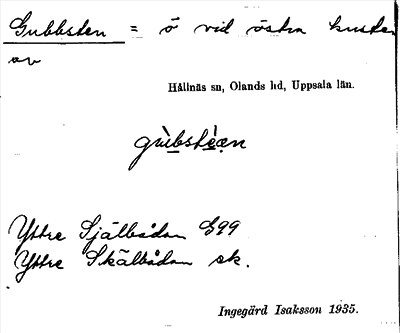 Gubbsten = ö vid östra kusten
av
Hållnäs sn, Olands hd, Uppsala län.
gùbstèan
Yttre Själbådan E99
Yttre Skälbådan sk.
Ingegärd Isaksson 1935.